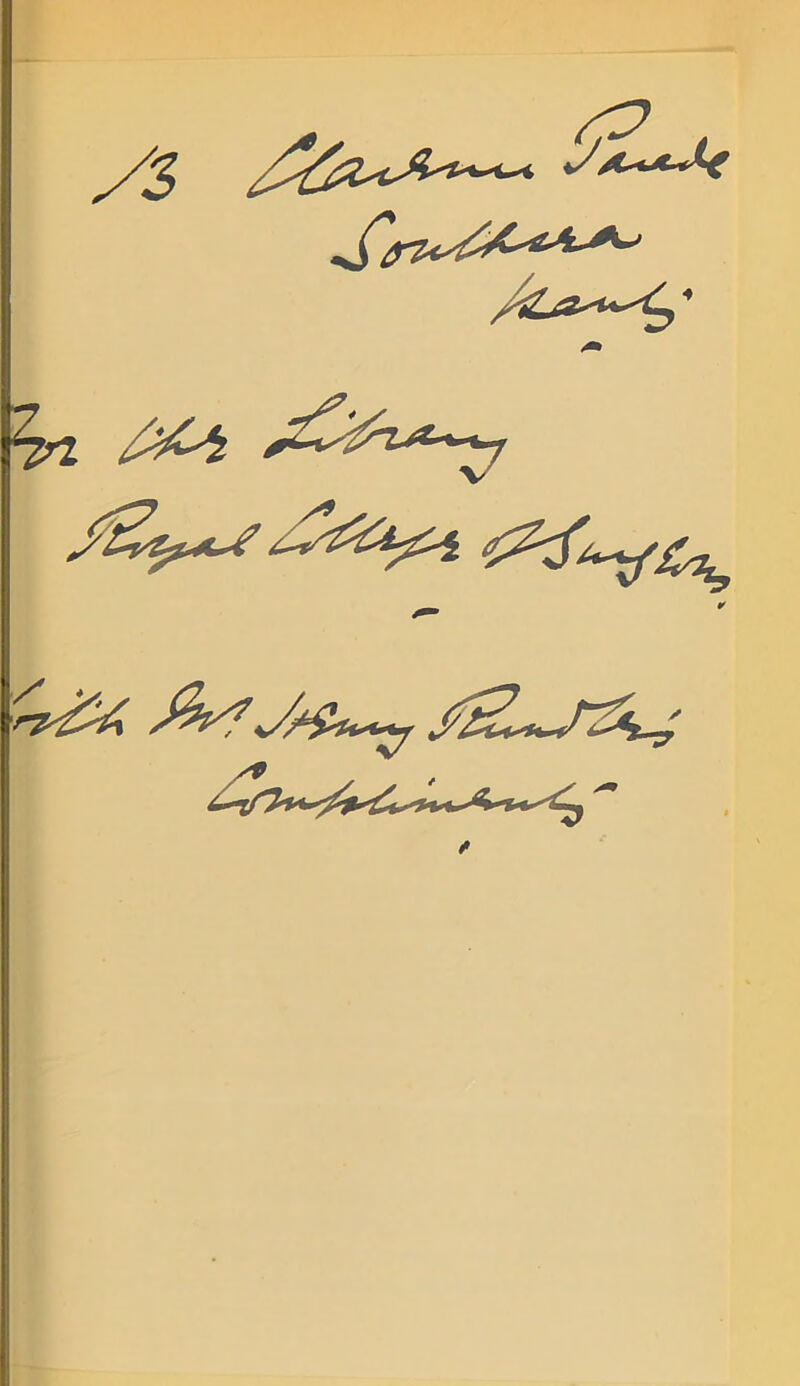 13 Clarence Parade
Southsea
Hants
For the Library
Royal College of Surgeons,
with Mr. Henry Rundle's
Compliments